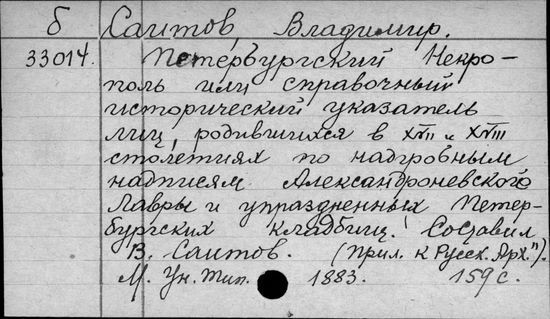 б Саитов, Владимир.
33014. Петербургский Некро-
поль или справочный
исторический указатель
лиц, родившихся в XVII и XVIII
столетиях по надгробным
надписям Александроневского
Лавры и упраздненных Петер-
бургских кладбищ. Составил
В. Саитов. (Прил. к Русск. Арх.").
М. Ун. тип. 1883. 159 с.